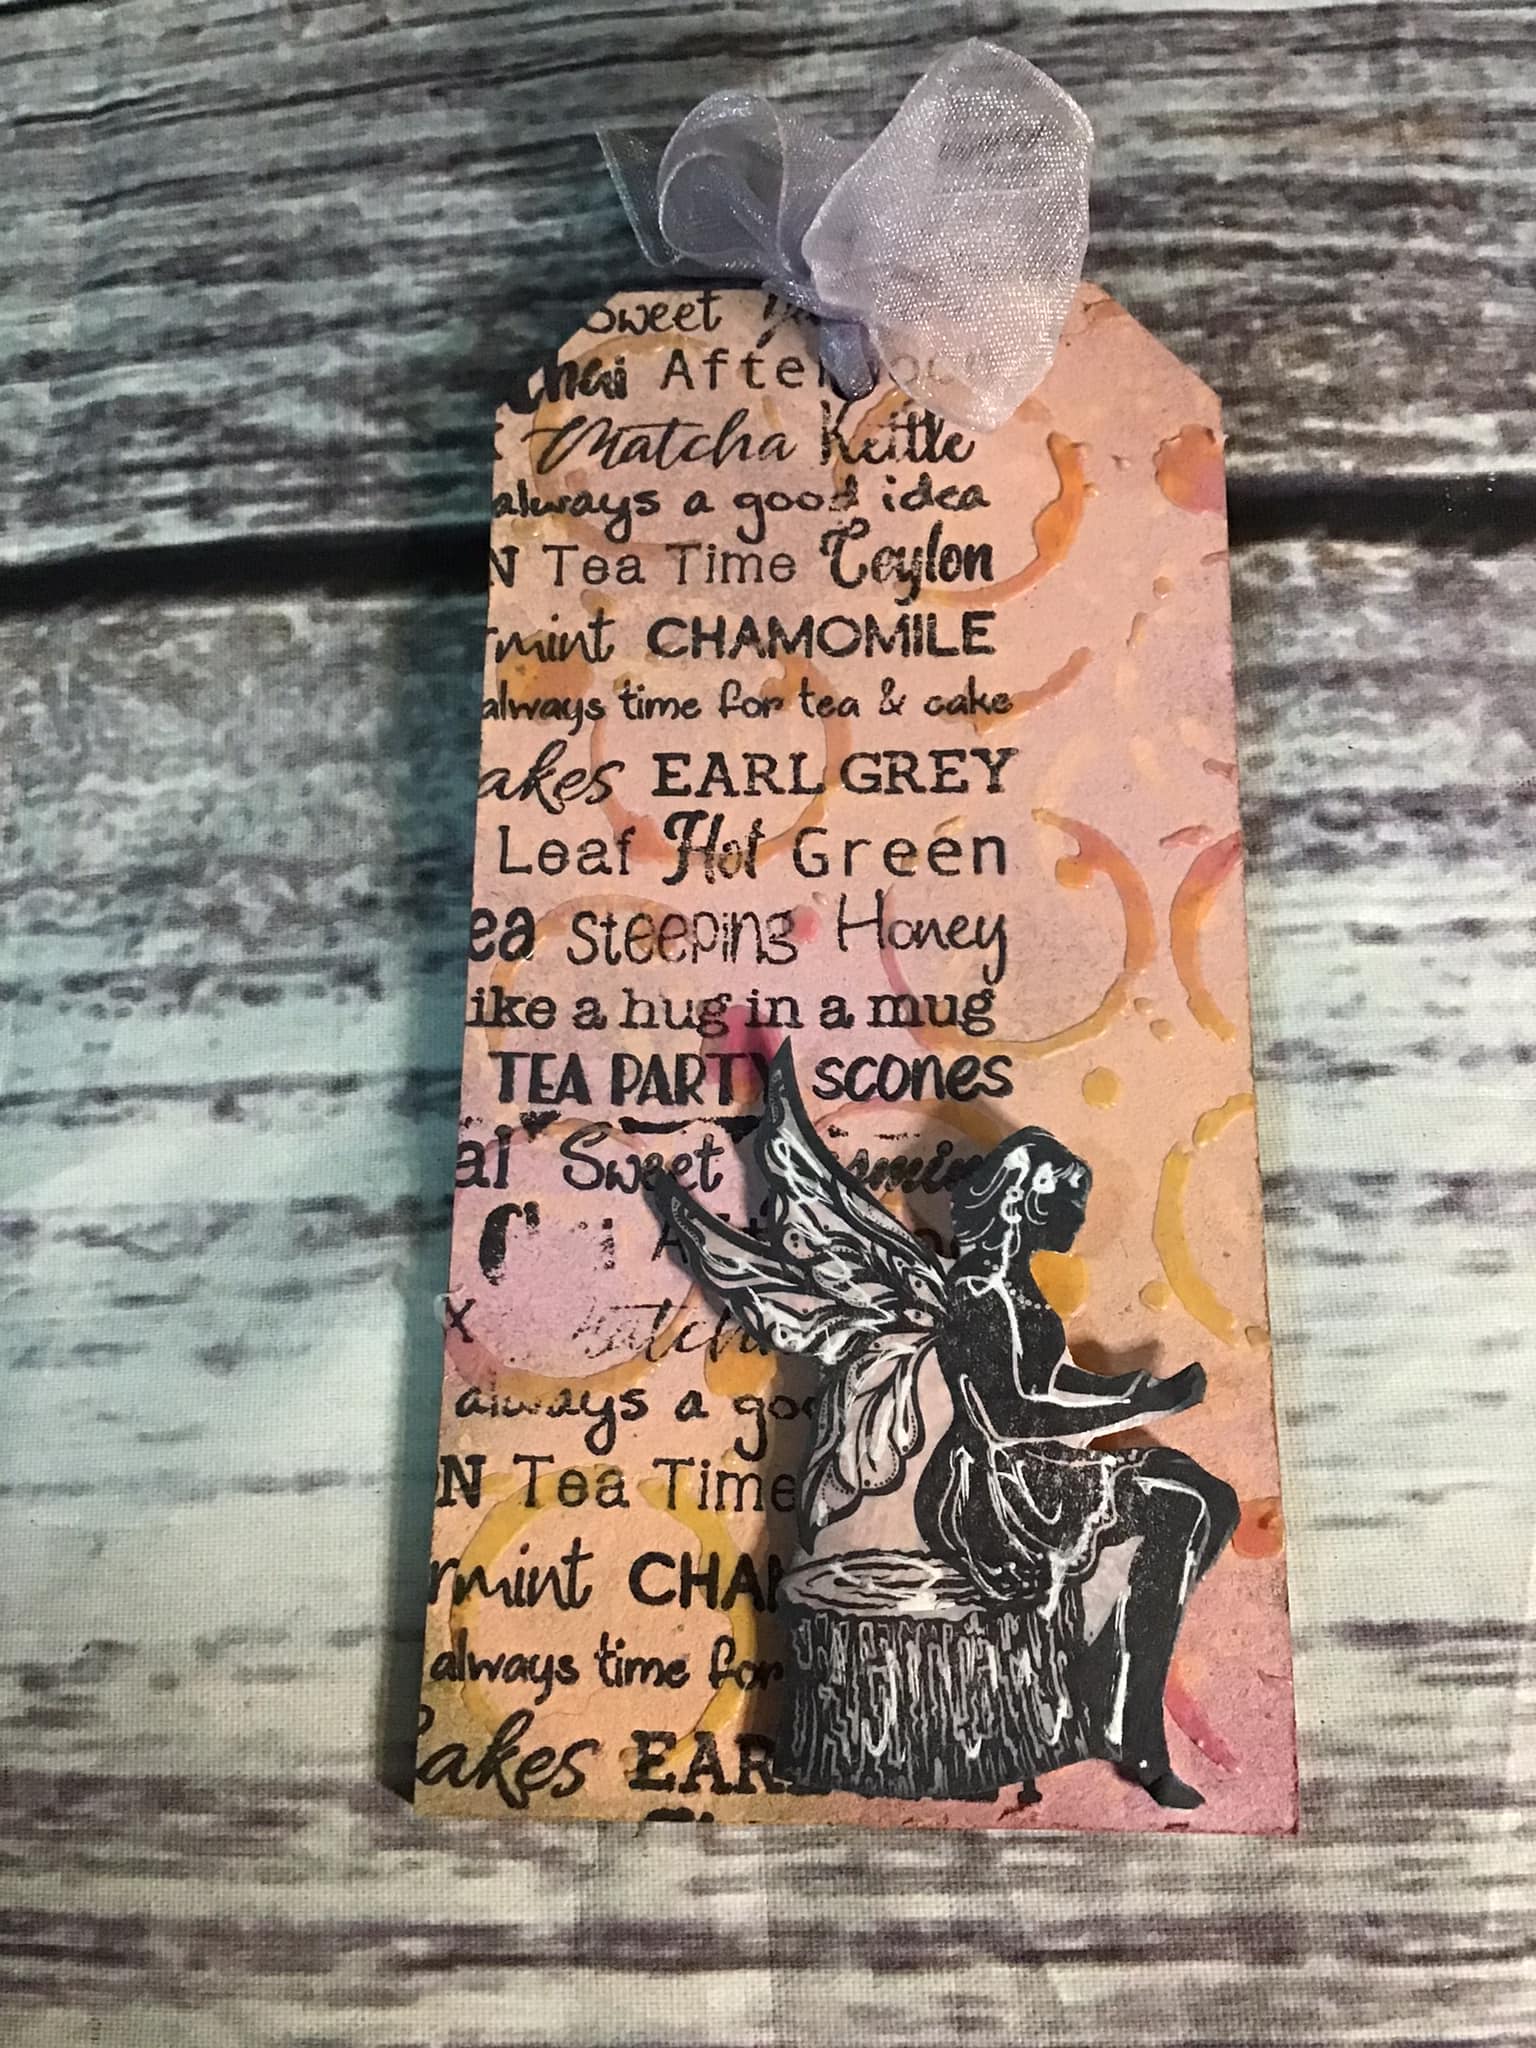 Sweet
chai Afternoon
Matcha Kettle
always a good idea
N Tea Time Ceylon
rmint CHAMOMILE
always time for tea & cake
akes EARL GREY
Leaf Hot Green
ea steeping Honey
ike a hug in a mug
TEA PARTY scones
al Sweet asmin
x atcha
always a goo
N Tea Time
rmint CHAM
always time for
akes EAR